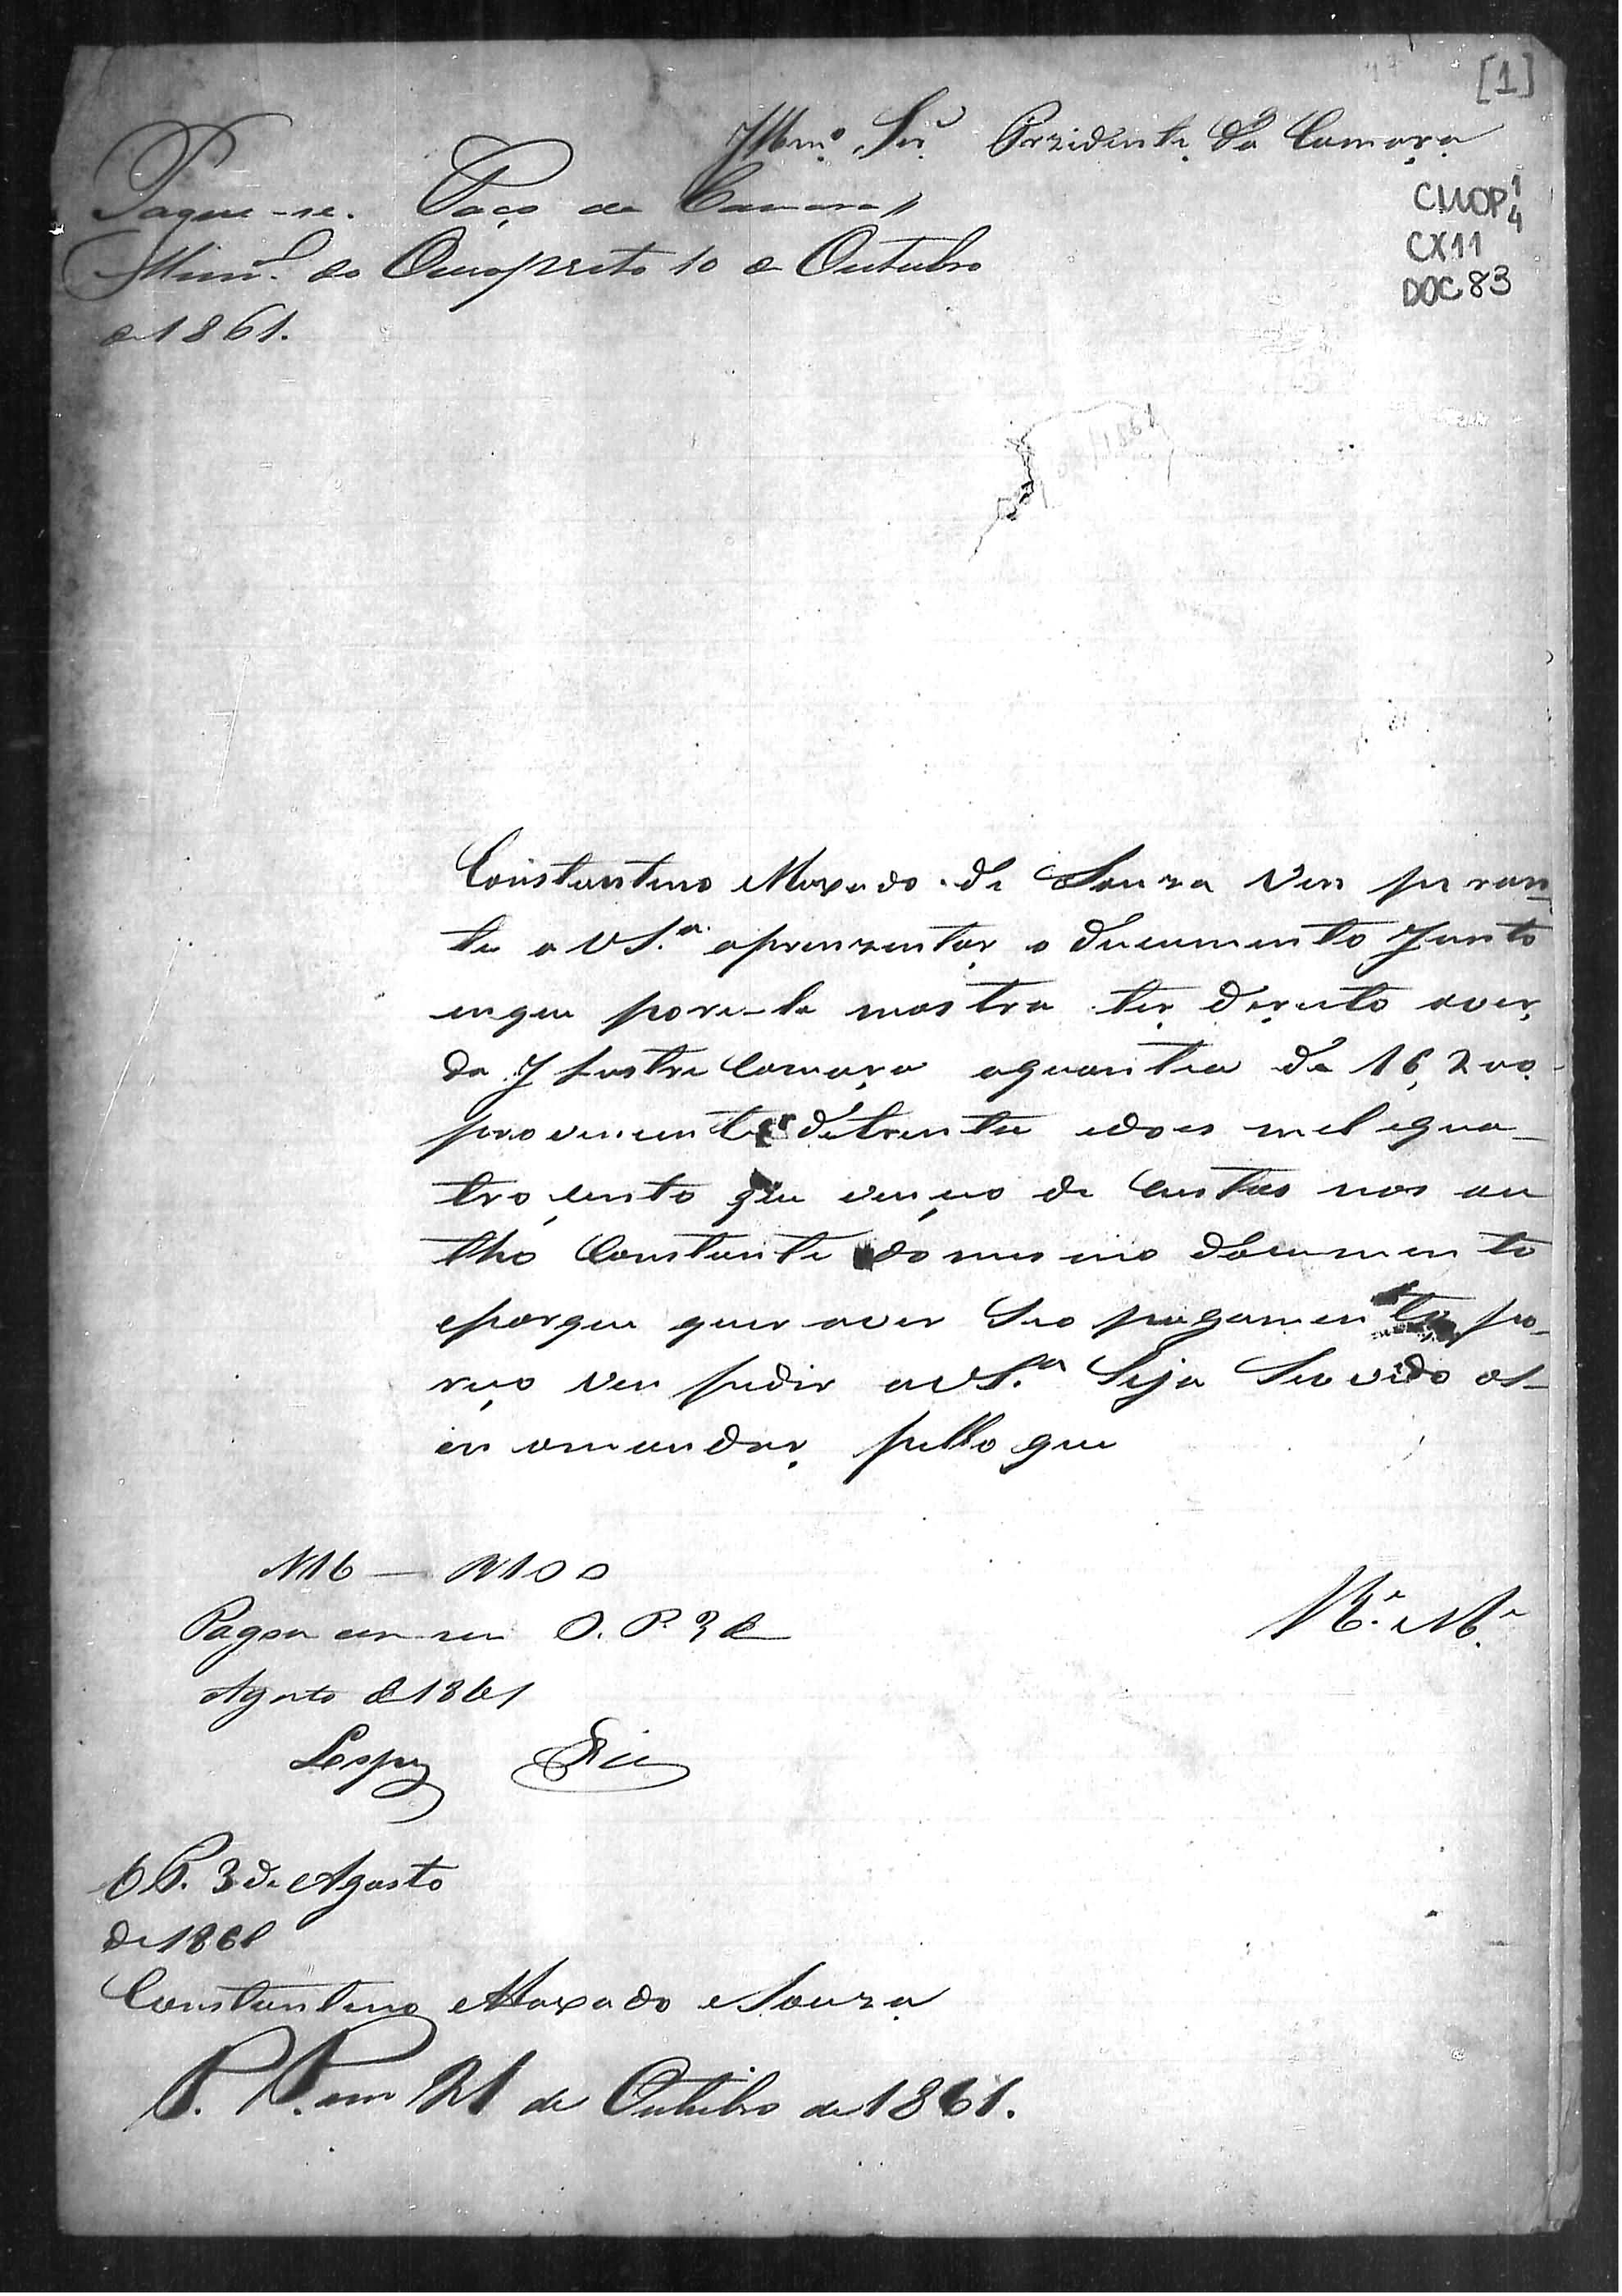 [1]
Illmo. Snr. Prezidente da Camara
CMOP 1/4
CX11
DOC 83
Pague-se. Paço da Camara
Munal. do Ouropreto 10 de Outubro
de 1861.
Constantino Maxado de Souza vem peran-
te a VS.ª aprenzentar o ducumento Junto
enque pore-le mostra ter dereito aver,
da Illustre Camara aquantia de 16,200
proveniente detrenta edois mel equa-
tro,cento que vençeo de Custas nos au
tho Constante do mesmo documento
eporque quer aver seo pagamento, po-
reço vem pedir aVS.ª Seja Servido as-
in omandar, pello que
R.ª M.ª
N16 — R100
Pagou cem reis O. P. 3 de
Agosto de 1861
Lopes
O P. 3 de Agosto
de 1861
Constantino Maxado e Souza
P. P. em 21 de Outubro de 1861.